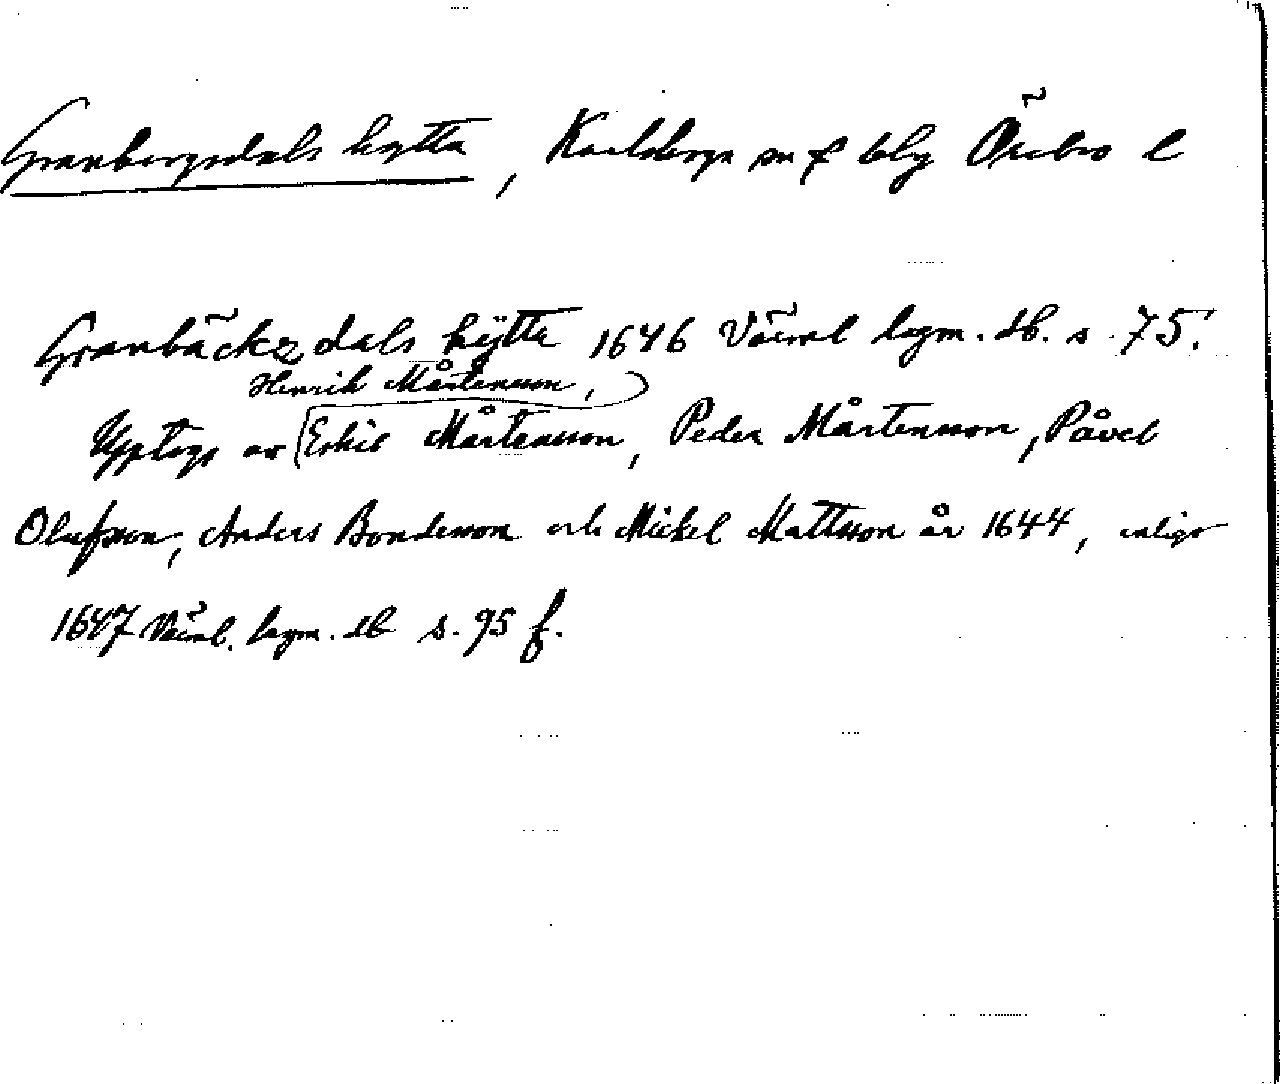 Granbergsdals hytta, Karlskoga sn o blg Örebro l
Granbäckz dals hÿtta 1646 Värml bergm. db. s. 75.
Henrik Mårtensson,
Upptogs av Erkil Mårtensson, Peder Mårtensson, Påvel
Olufsson, Anders Bondesson och Mickel Mattsson år 1644, enligt
1647 Värml. bergm. db s. 95 f.